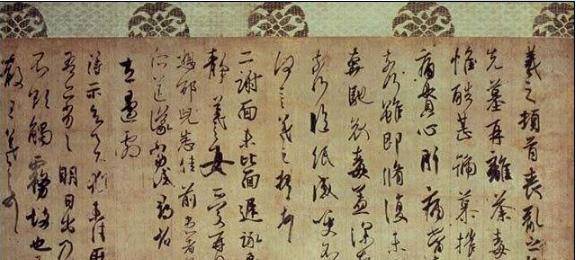 羲之頓首喪亂之
先墓再離荼毒
惟酷甚號慕摧
痛貫心肝痛當
奈何雖即脩復未
奔馳哀毒益深
奈何臨紙感哽不
何言羲之頓首
二謝面未比面遲詠
靜羲之女愛再
想邵兒悉佳前患者
所送議當試尋省
左邊劇
得示知足下猶未佳
吾亦劣劣明日出乃
不欲觸霧故也
散王羲之頓